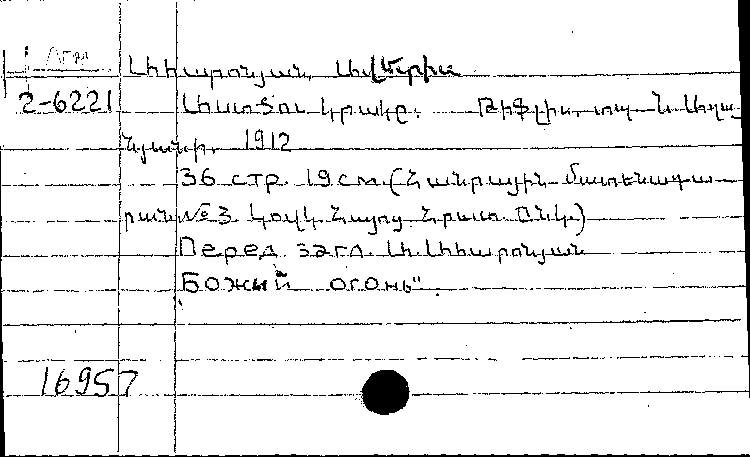 Ահարոնյան, Ավետիս
2-6221 Աստծու կրակը. Թիֆլիս, տպ. Ն. Աղա-
նյանի. 1912
36 стр. 19 см. (Հանրային մատենադա-
րան № 3 Կովկ. Հայոց Հրատ. Ընկ.)
Перед загл. Ա. Ահարոնյան
Божый огонь".
16957